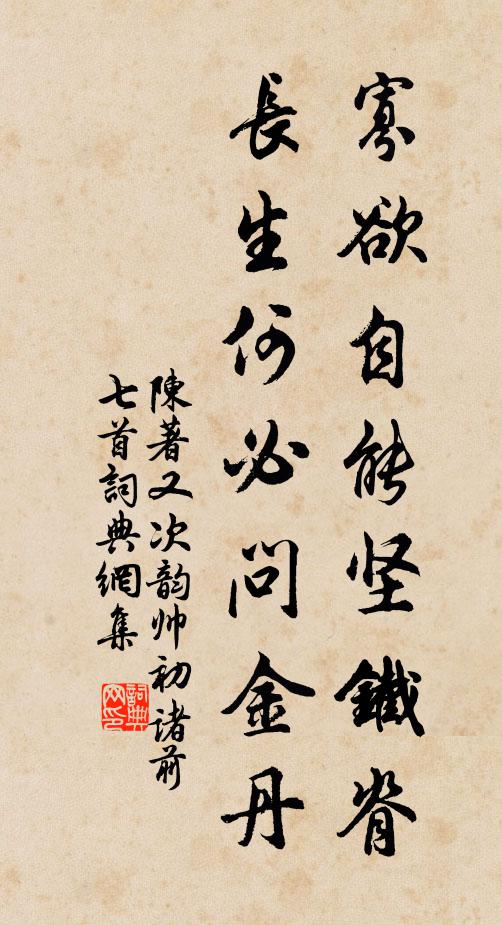 寡欲自能坚鐵脊
長生何必問金丹
陳著又次韵帅初诸前
七首詞典網集
詞典网印